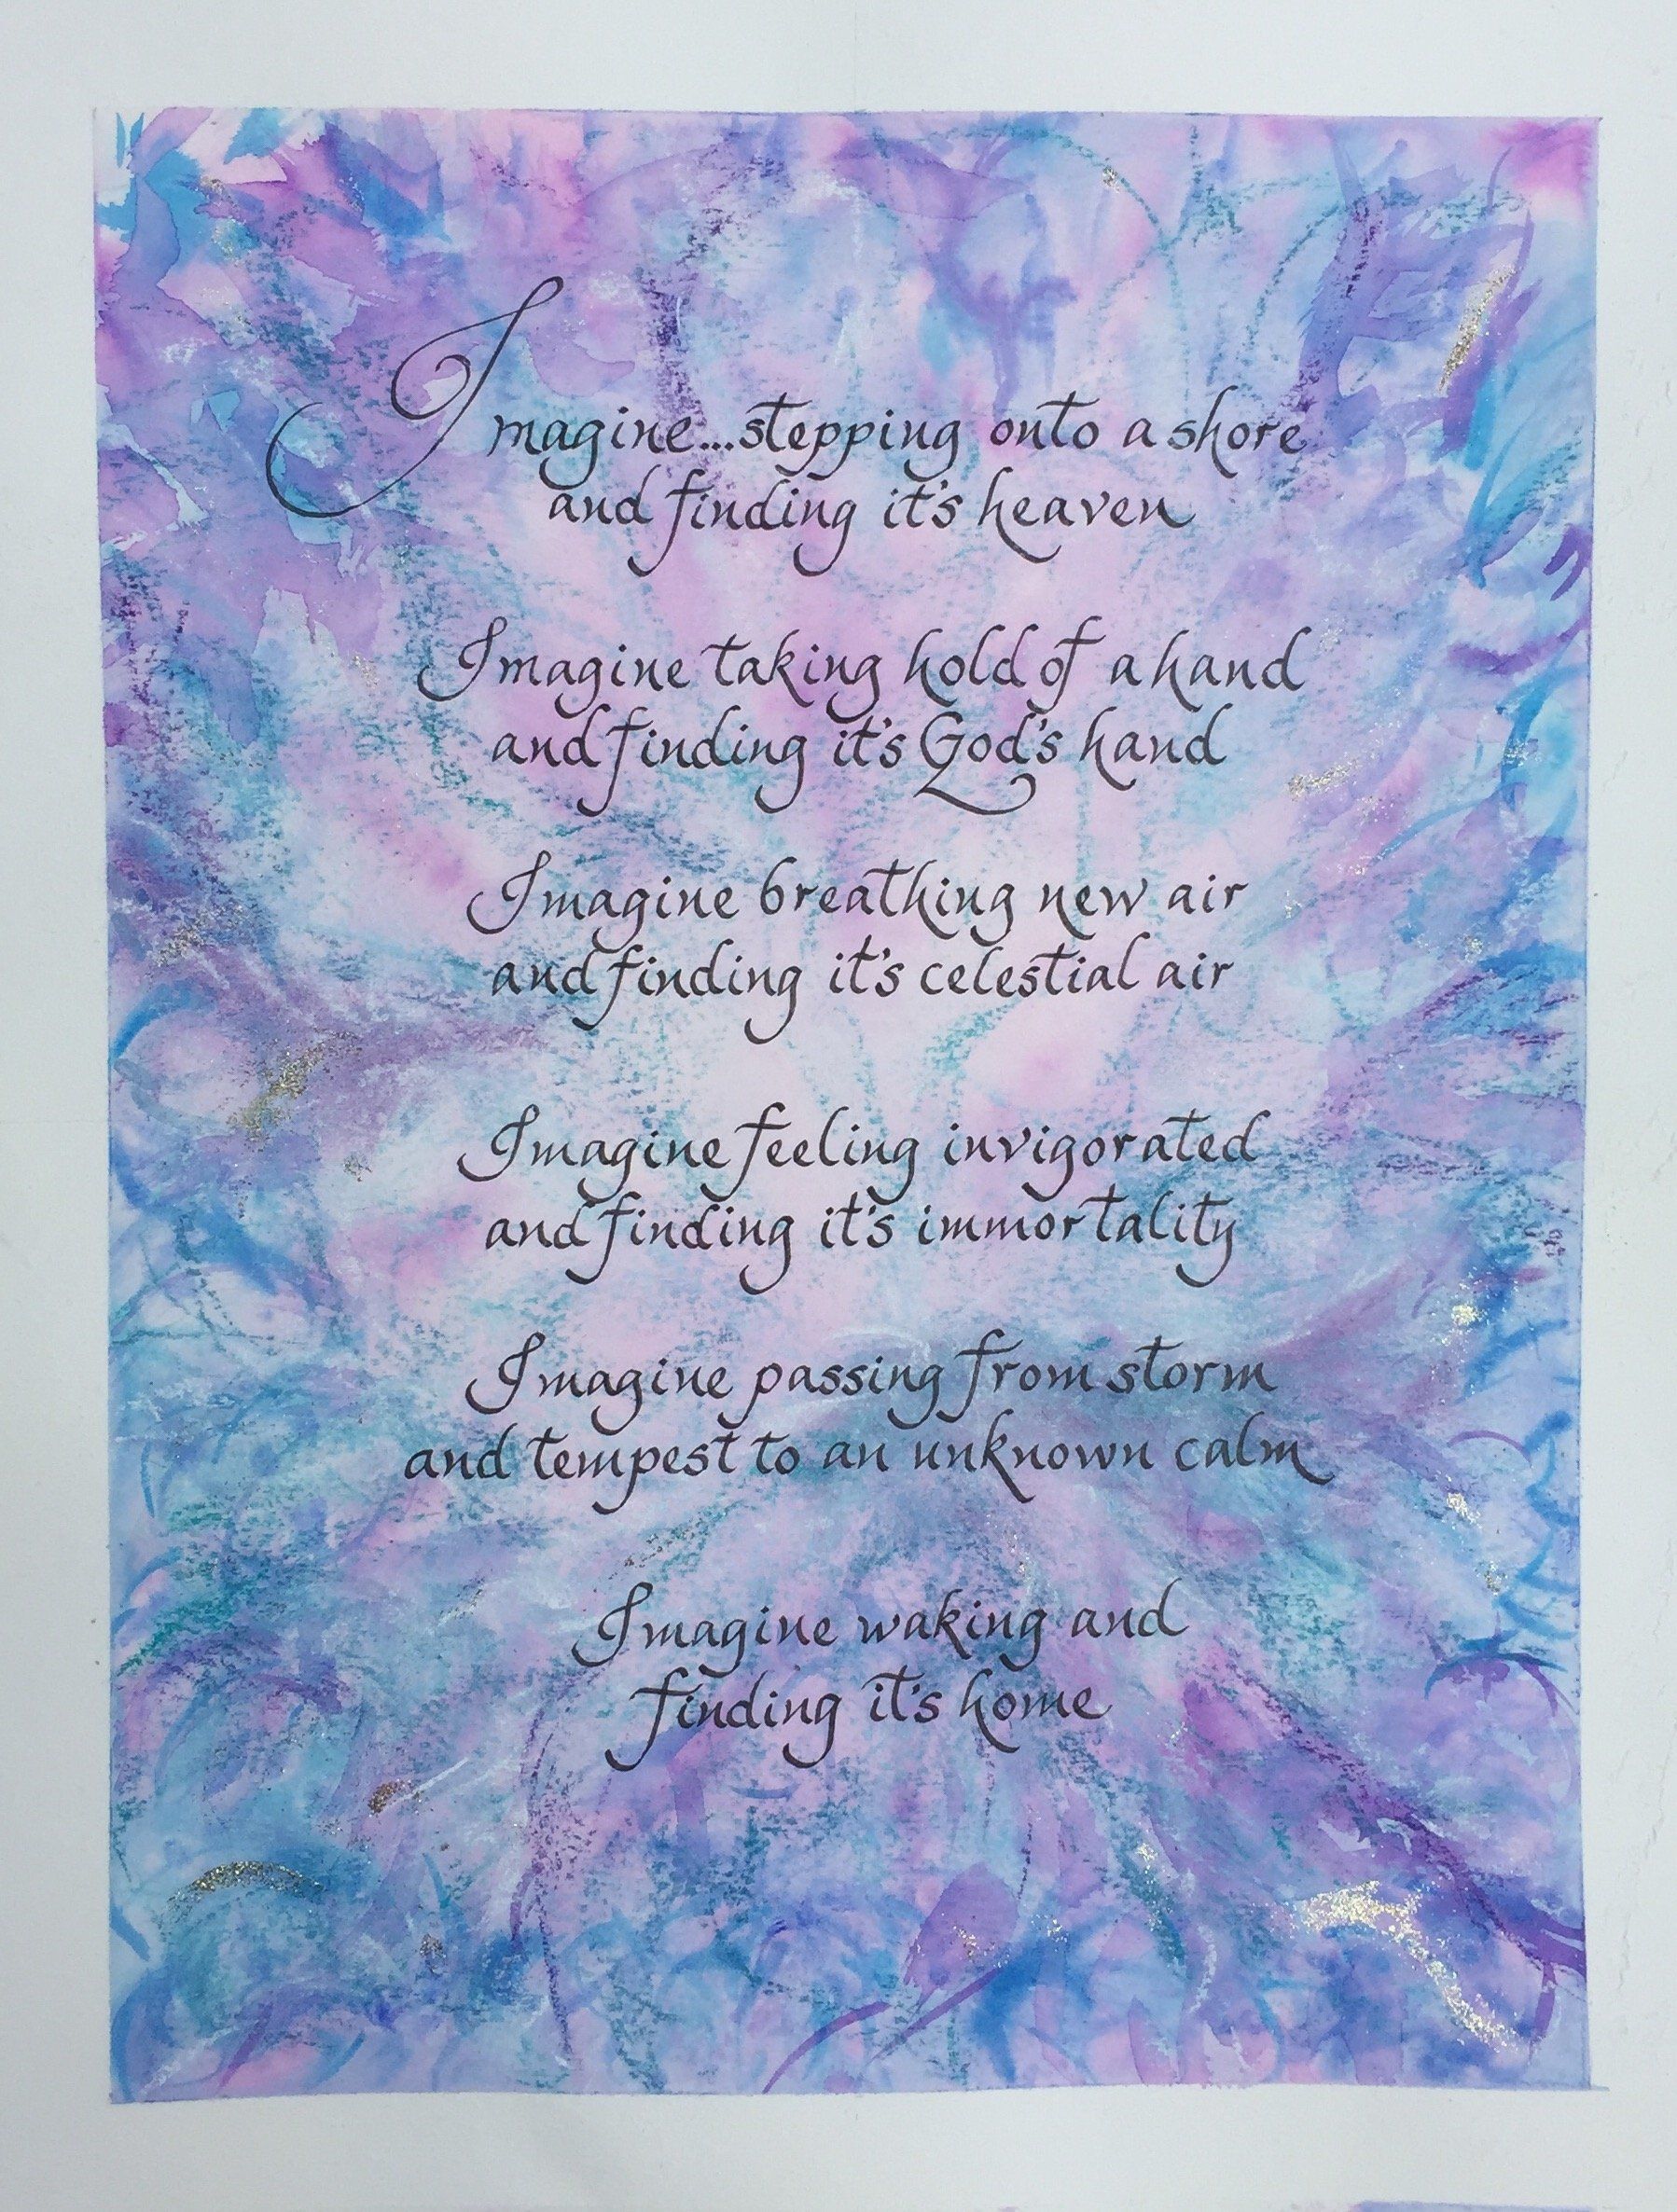 Imagine...stepping onto a shore
and finding it's heaven
Imagine taking hold of a hand
and finding it's God's hand
Imagine breathing new air
and finding it's celestial air
Imagine feeling invigorated
and finding it's immortality
Imagine passing from storm
and tempest to an unknown calm
Imagine waking and
finding it's home